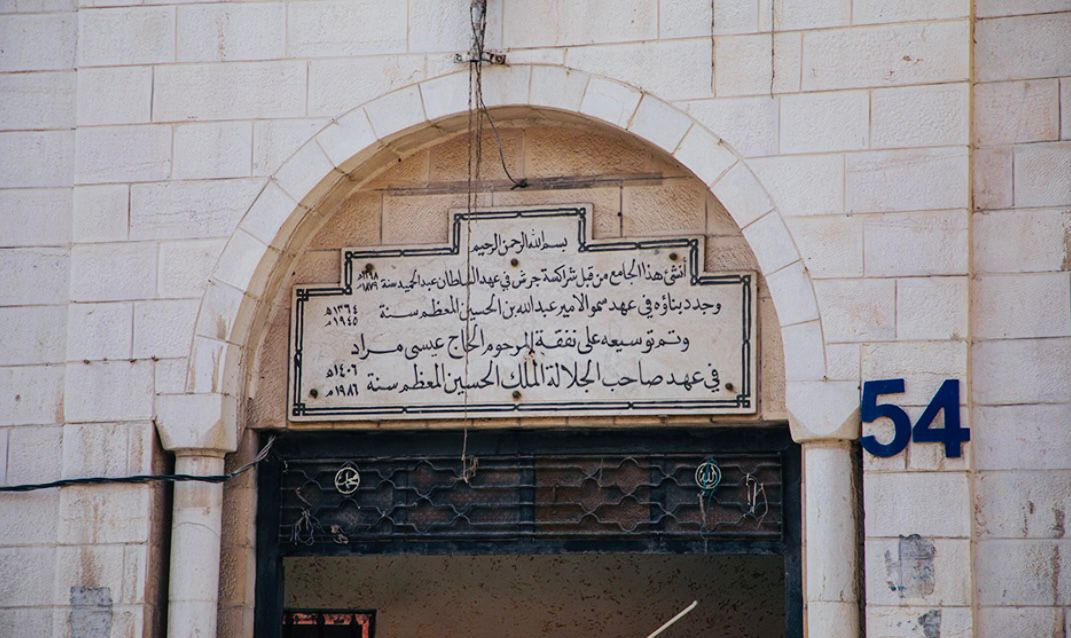 بسم الله الرحمن الرحيم
أنشئ هذا الجامع من قبل شراكسة جرش في عهد السلطان عبد الحميد سنة ١٢٩٨هـ ١٨٧٩م
وجدد بناؤه في عهد سمو الامير عبد الله بن الحسين المعظم سنة ١٣٦٤هـ ١٩٤٥م
وتم توسيعه على نفقة المرحوم الحاج عيسى مراد
في عهد صاحب الجلالة الملك الحسين المعظم سنة ١٤٠٦هـ ١٩٨٦م
54
محمد
الله